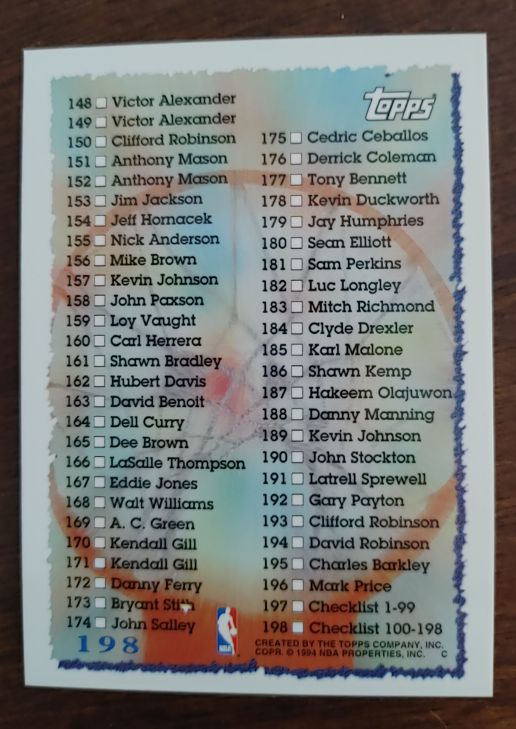 148 Victor Alexander
149 Victor Alexander
150 Clifford Robinson
151 Anthony Mason
152 Anthony Mason
153 Jim Jackson
154 Jeff Hornacek
155 Nick Anderson
156 Mike Brown
157 Kevin Johnson
158 John Paxson
159 Loy Vaught
160 Carl Herrera
161 Shawn Bradley
162 Hubert Davis
163 David Benoit
164 Dell Curry
165 Dee Brown
166 LaSalle Thompson
167 Eddie Jones
168 Walt Williams
169 A. C. Green
170 Kendall Gill
171 Kendall Gill
172 Danny Ferry
173 Bryant
174 John Salley
198
TOPPS
175 Cedric Ceballos
176 Derrick Coleman
177 Tony Bennett
178 Kevin Duckworth
179 Jay Humphries
180 Sean Elliott
181 Sam Perkins
182 Luc Longley
183 Mitch Richmond
184 Clyde Drexler
185 Karl Malone
186 Shawn Kemp
187 Hakeem Olajuwon
188 Danny Manning
189 Kevin Johnson
190 John Stockton
191 Latrell Sprewell
192 Gary Payton
193 Clifford Robinson
194 David Robinson
195 Charles Barkley
196 Mark Price
197 Checklist 1-99
198 Checklist 100-198
NBA
CREATED BY THE TOPPS COMPANY, INC.
COPR. © 1994 NBA PROPERTIES, INC. C